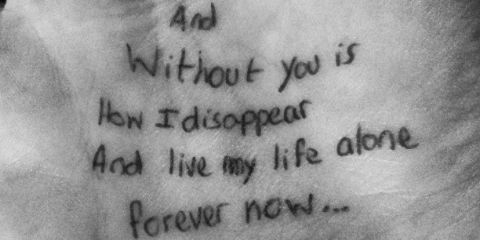 And
Without you is
How I disappear
And live my life alone
forever now...